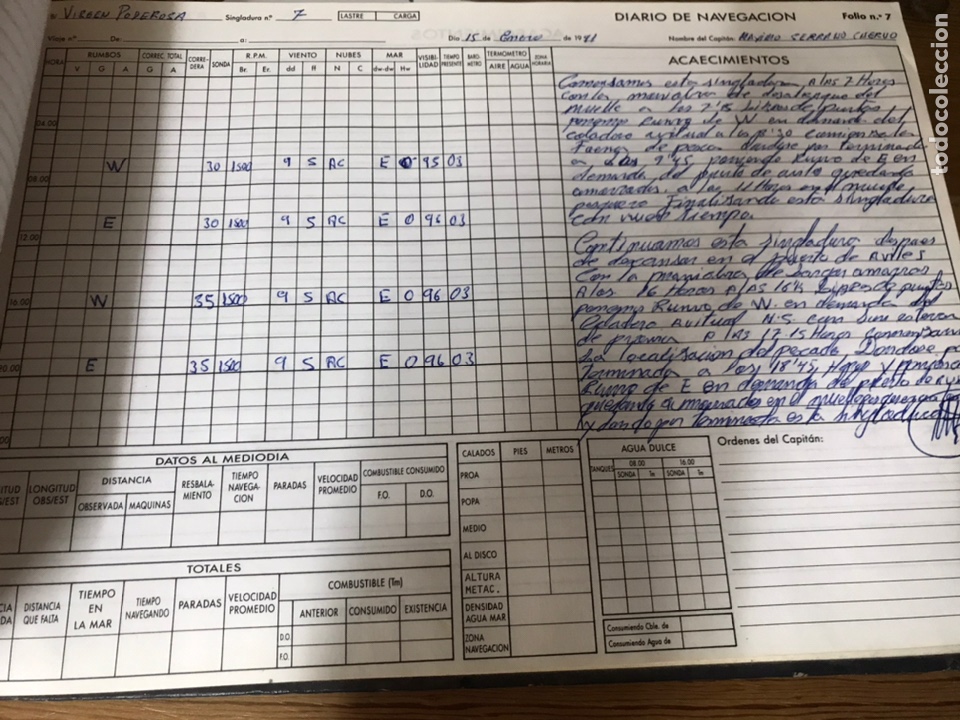 VIRGEN PODEROSA Singladura n.º 7 LASTRE CARGA DIARIO DE NAVEGACION Folio n.º 7
Viaje n.º De a: Día 15 de Enero de 19 Nombre del Capitán: MAXIMO SERRANO CUERVO
HORA RUMBOS V G A CORREC. TOTAL G A CORREDERA SONDA R.P.M. Br. Er. VIENTO dd ff NUBES N C MAR dw-dw Hw VISIBILIDAD TIEMPO PRESENTE BAROMETRO TERMOMETRO AIRE AGUA ZONA HORARIA
ACAECIMIENTOS
Comensamos esta singladura A las 7 Horas
Con la maniobra de desatraque del
muelle a las 7'15 Libres de puntas
ponemos Rumvo de W en demanda del
caladero avitual a las 8'30 comiensa la
Faena de pesca dandose por terminada
a las 9'45 poniendo Rumvo de E en
demanda del puerto de quedando
amarrados a las 11 Horas en el muelle
pesquero finalisando esta singladura
con vuen tiempo.
Continuamos esta singladura despues
de descansar en el puerto de Aviles
Con la maniobra de largar amarras
A las 16 Horas A las 16'½ Livres de puntas
ponemos Rumvo de W. en demanda del
Caladero Avitual
A las 17-15 Horas
La localisacion del pescado, Dandose por
Terminada a las 18'45 Horas y poniendo
Rumvo de E en demanda del puerto de
quedando amarrados en el muelle
y dando por terminada esta singladura
04.00
W 30 1500 9 5 AC E 0 95 03
08.00
E 30 1500 9 5 AC E 0 96 03
12.00
16.00 W 35 1500 9 5 AC E 0 96 03
20.00 E 35 1500 9 5 AC E 0 96 03
DATOS AL MEDIODIA
LONGITUD OBS/EST DISTANCIA OBSERVADA MAQUINAS RESBALAMIENTO TIEMPO NAVEGACION PARADAS VELOCIDAD PROMEDIO COMBUSTIBLE CONSUMIDO F.O. D.O.
TOTALES
DISTANCIA QUE FALTA TIEMPO EN LA MAR TIEMPO NAVEGANDO PARADAS VELOCIDAD PROMEDIO COMBUSTIBLE (Tm) ANTERIOR CONSUMIDO EXISTENCIA
D.O.
F.O.
CALADOS PIES METROS
PROA
POPA
MEDIO
AL DISCO
ALTURA METAC.
DENSIDAD AGUA MAR
ZONA NAVEGACION
AGUA DULCE
TANQUES 08.00 16.00
SONDA Tm SONDA Tm
Consumiendo Cble. de
Consumiendo Agua de
Ordenes del Capitán:
todocoleccion